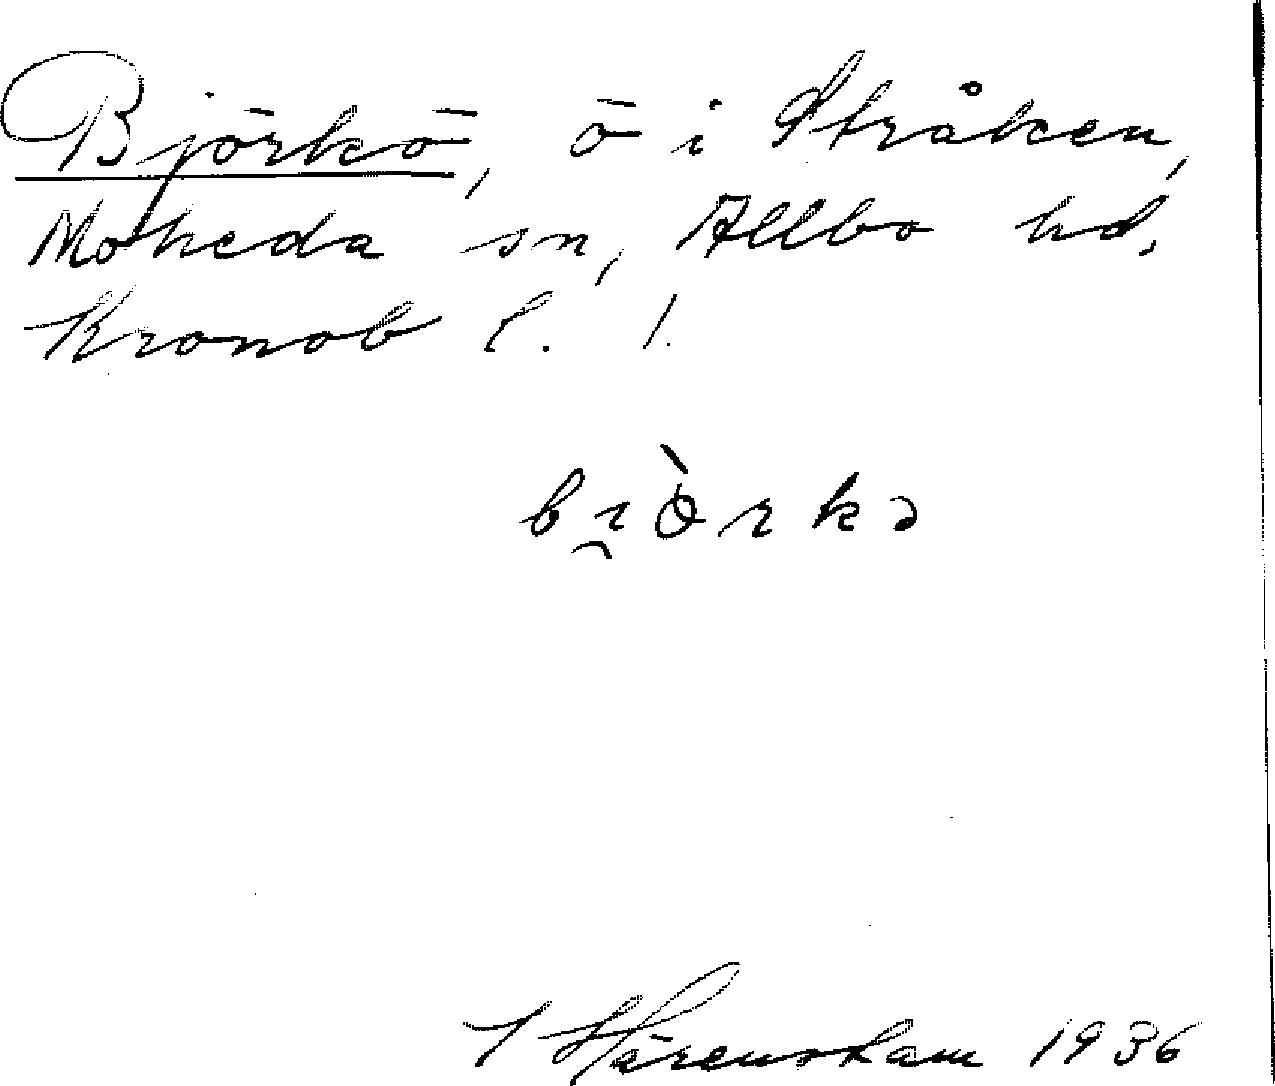 Björkö, ö i Stråken,
Moheda sn, Allbo hd.
Kronob l. !
bi̯ὸrkə
I Härenstam 1936